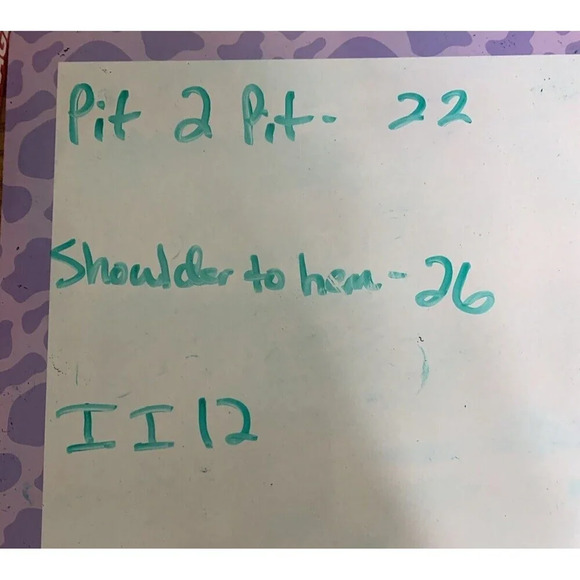 Pit 2 Pit- 22
Shoulder to hem - 26
I I 12